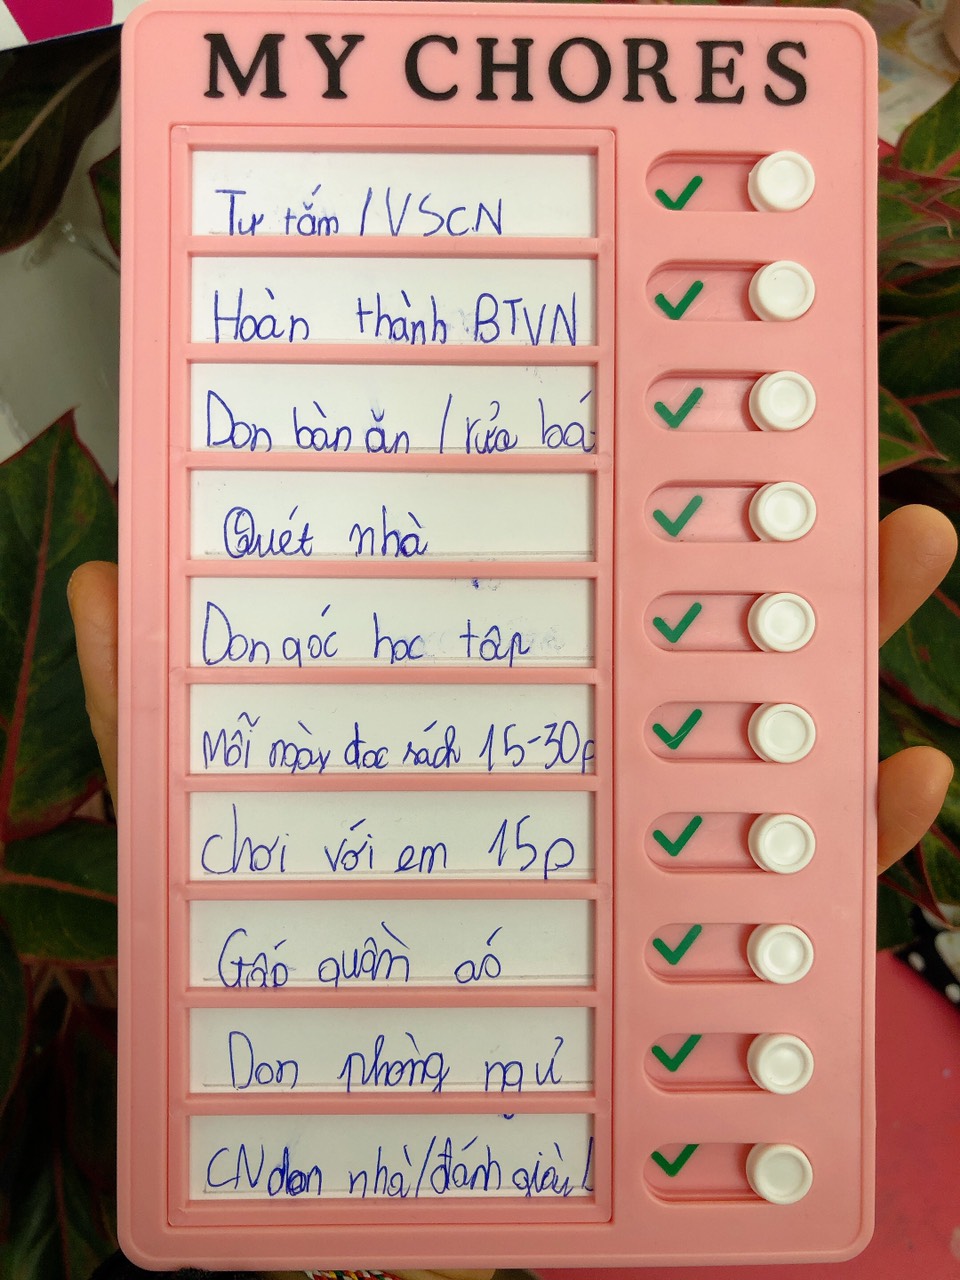 MY CHORES
Tự tắm / VSCN
Hoàn thành BTVN
Dọn bàn ăn / rửa bá
Quét nhà
Dọn góc học tập
Mỗi ngày đọc sách 15-30p
Chơi với em 15p
Gấp quần áo
Dọn phòng ngủ
CN dọn nhà/đánh giày/